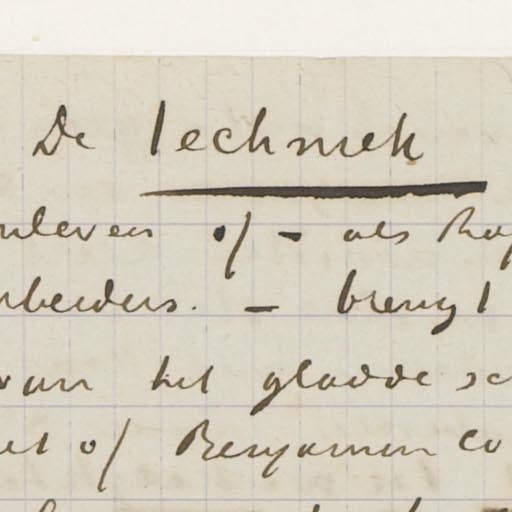 De Techniek
nleven of - als Rap
rbeiders. - brengt
van het gladde sc
et of Benjamin Co